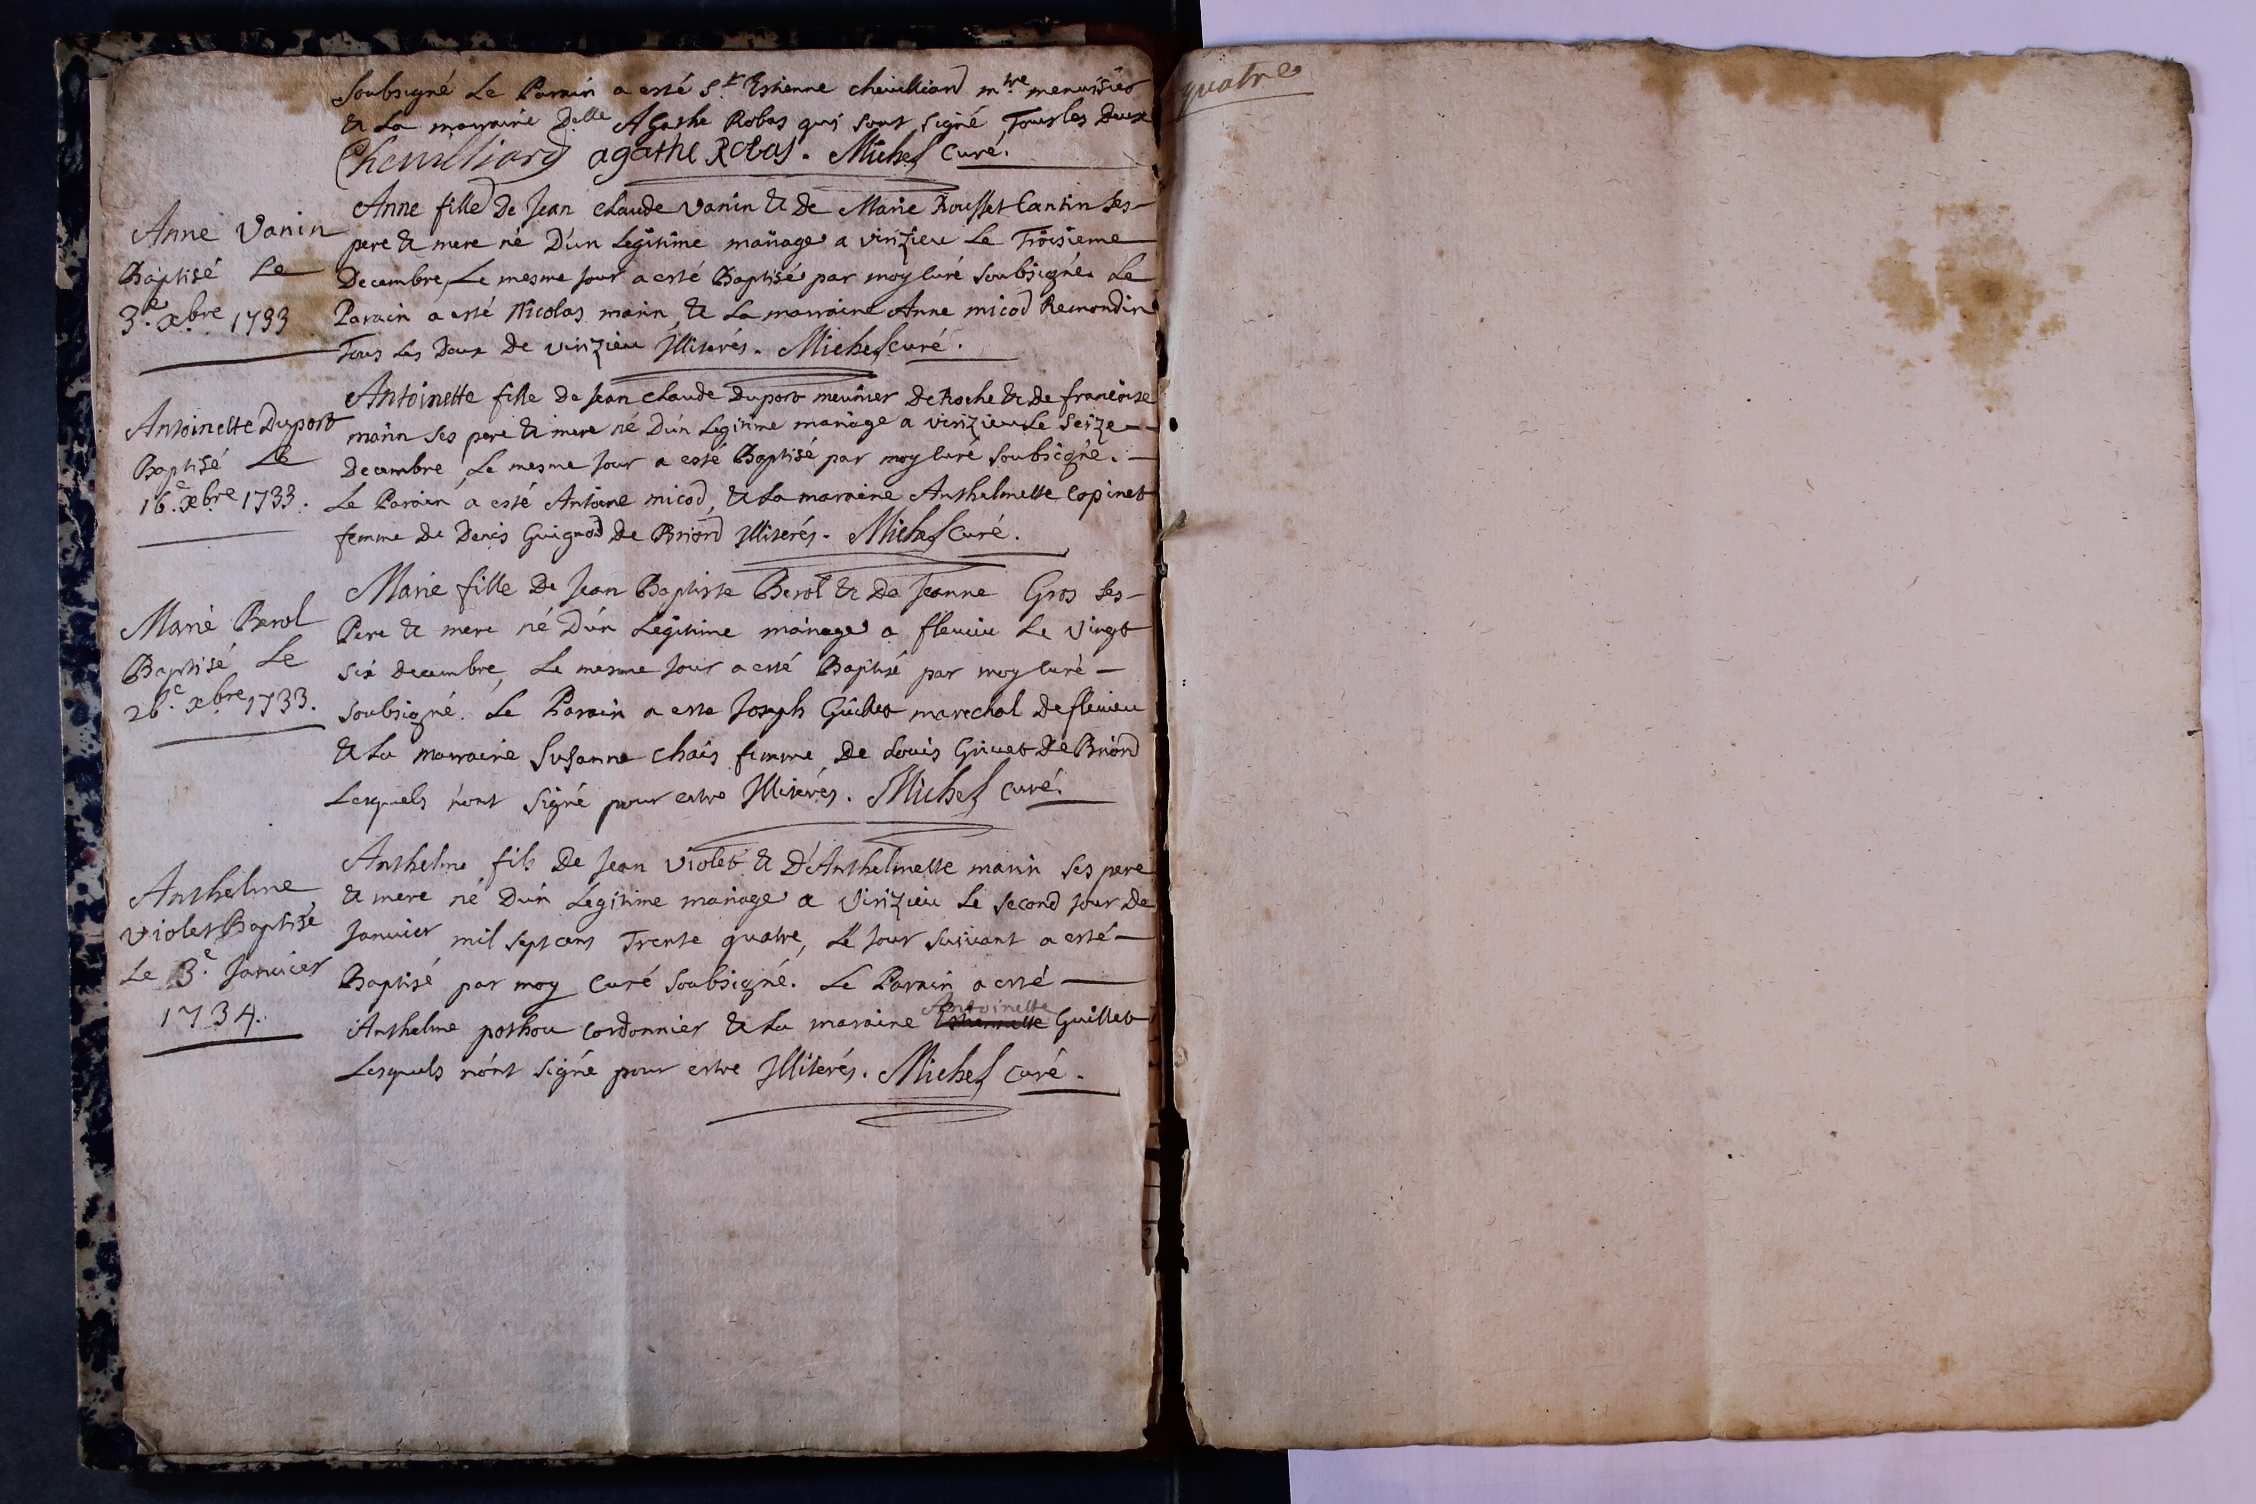 Soubsigné Le Parain a esté S.r Estienne chevilliard m.tre menuisier
& La marraine D.elle Agathe Robas qui sont signé Tous les Deux
Chevilliard agathe Robas. Michel Curé.
Anne Vanin
Baptisé Le
3.e xbre 1733
Anne fille De Jean claude Vanin & de Marie Rousset Cantin ses
pere & mere né D'un Legitime mariage a virizieu Le Troisieme
Decembre, Le mesme Jour a esté Baptisé par moy Curé Soubsigné. Le
Parain a esté Nicolas marin, & La marraine Anne micod Remondin
Tous Les Deux De virizieu Jlliterés. Michel Curé.
Antoinette Duport
Baptisé Le
16.e xbre 1733.
Antoinette fille De Jean claude Duport meunier De Roche & De francoise
marin ses pere & mere né D'un Legitime mariage a virizieu Le Seize
decembre, Le mesme Jour a esté Baptisé par moy Curé Soubsigné.
Le Parain a esté Antoine micod, & La maraine Anthelmette Copinet
femme De Denis Guignod De Briord Jlliterés. Michel Curé.
Marie Berol
Baptisé Le
26.e xbre 1733.
Marie fille De Jean Baptiste Berol & De Jeanne Gros ses
Pere & mere né D'un Legitime mariage a flevieu Le vingt
six decembre, Le mesme Jour a esté Baptisé par moy Curé
Soubsigné. Le Parain a esté Joseph Guillet marechal De flevieu
& La marraine Susanne Chais femme De Louis Grivet De Briord
Lesquels n'ont signé pour estre Jlliterés. Michel Curé.
Anthelme
violet Baptisé
Le 3.e Janvier
1734.
Anthelme fils De Jean violet & D'Anthelmette marin ses pere
& mere né D'un Legitime mariage a virizieu Le second Jour De
Janvier mil sept cens Trente quatre, Le Jour suivant a esté
Baptisé par moy Curé Soubsigné. Le Parain a esté
Antoinette
Anthelme pothou Cordonnier & La maraine Estiennette Guillet
Lesquels n'ont signé pour estre Jlliterés. Michel Curé.
quatre